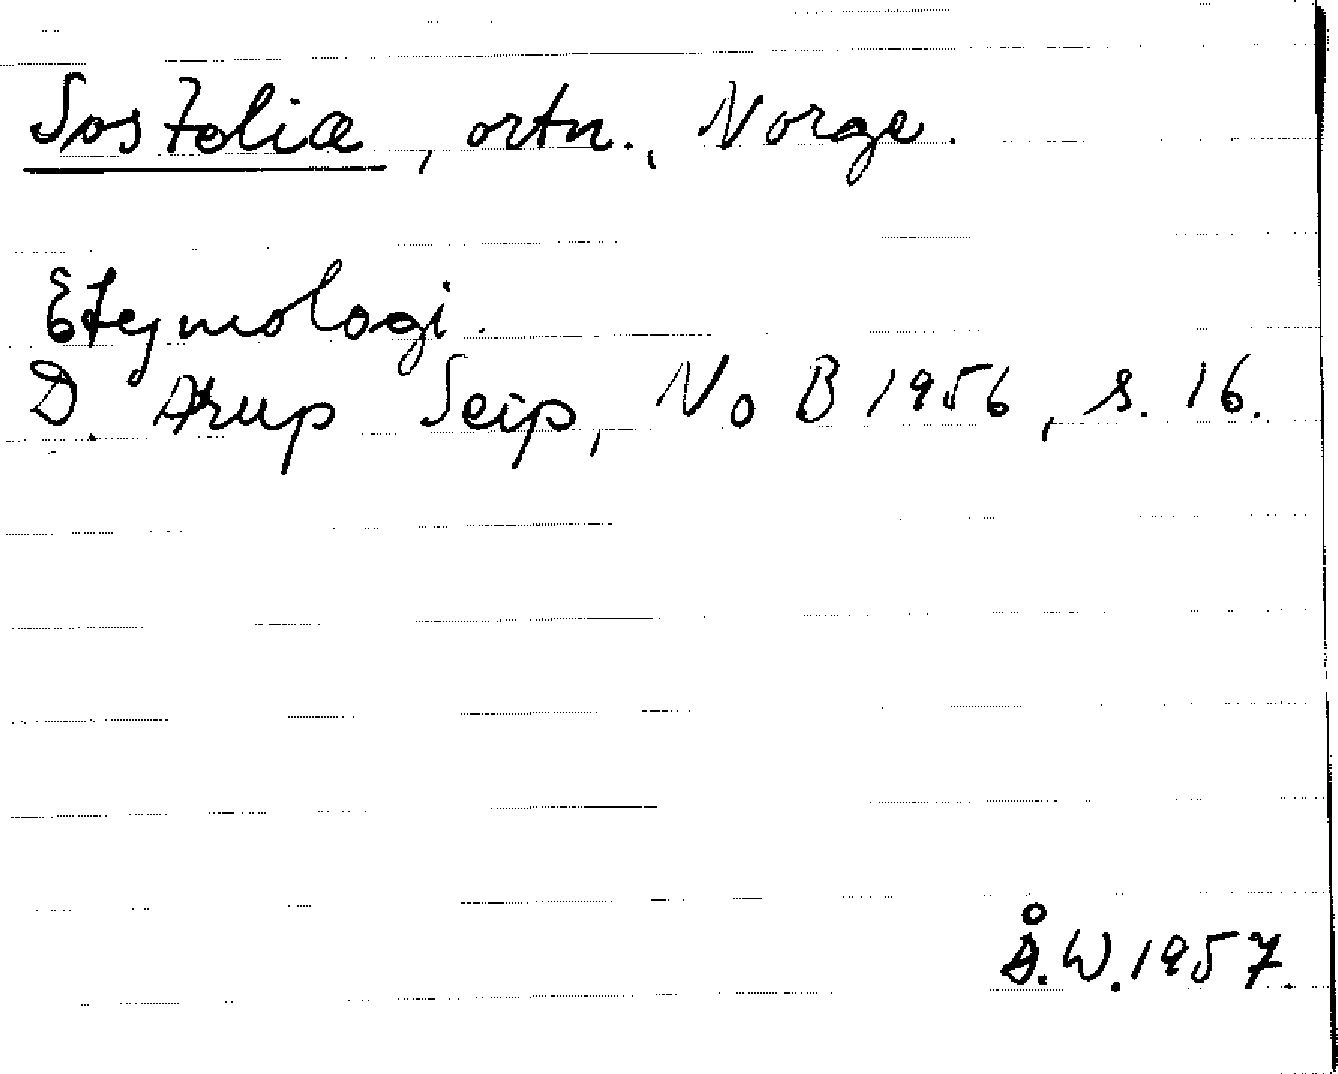 Sostolia, ortn., Norge.
Etymologi.
D. Arup Seip, NoB 1956, s. 16.
Å.W. 1957.